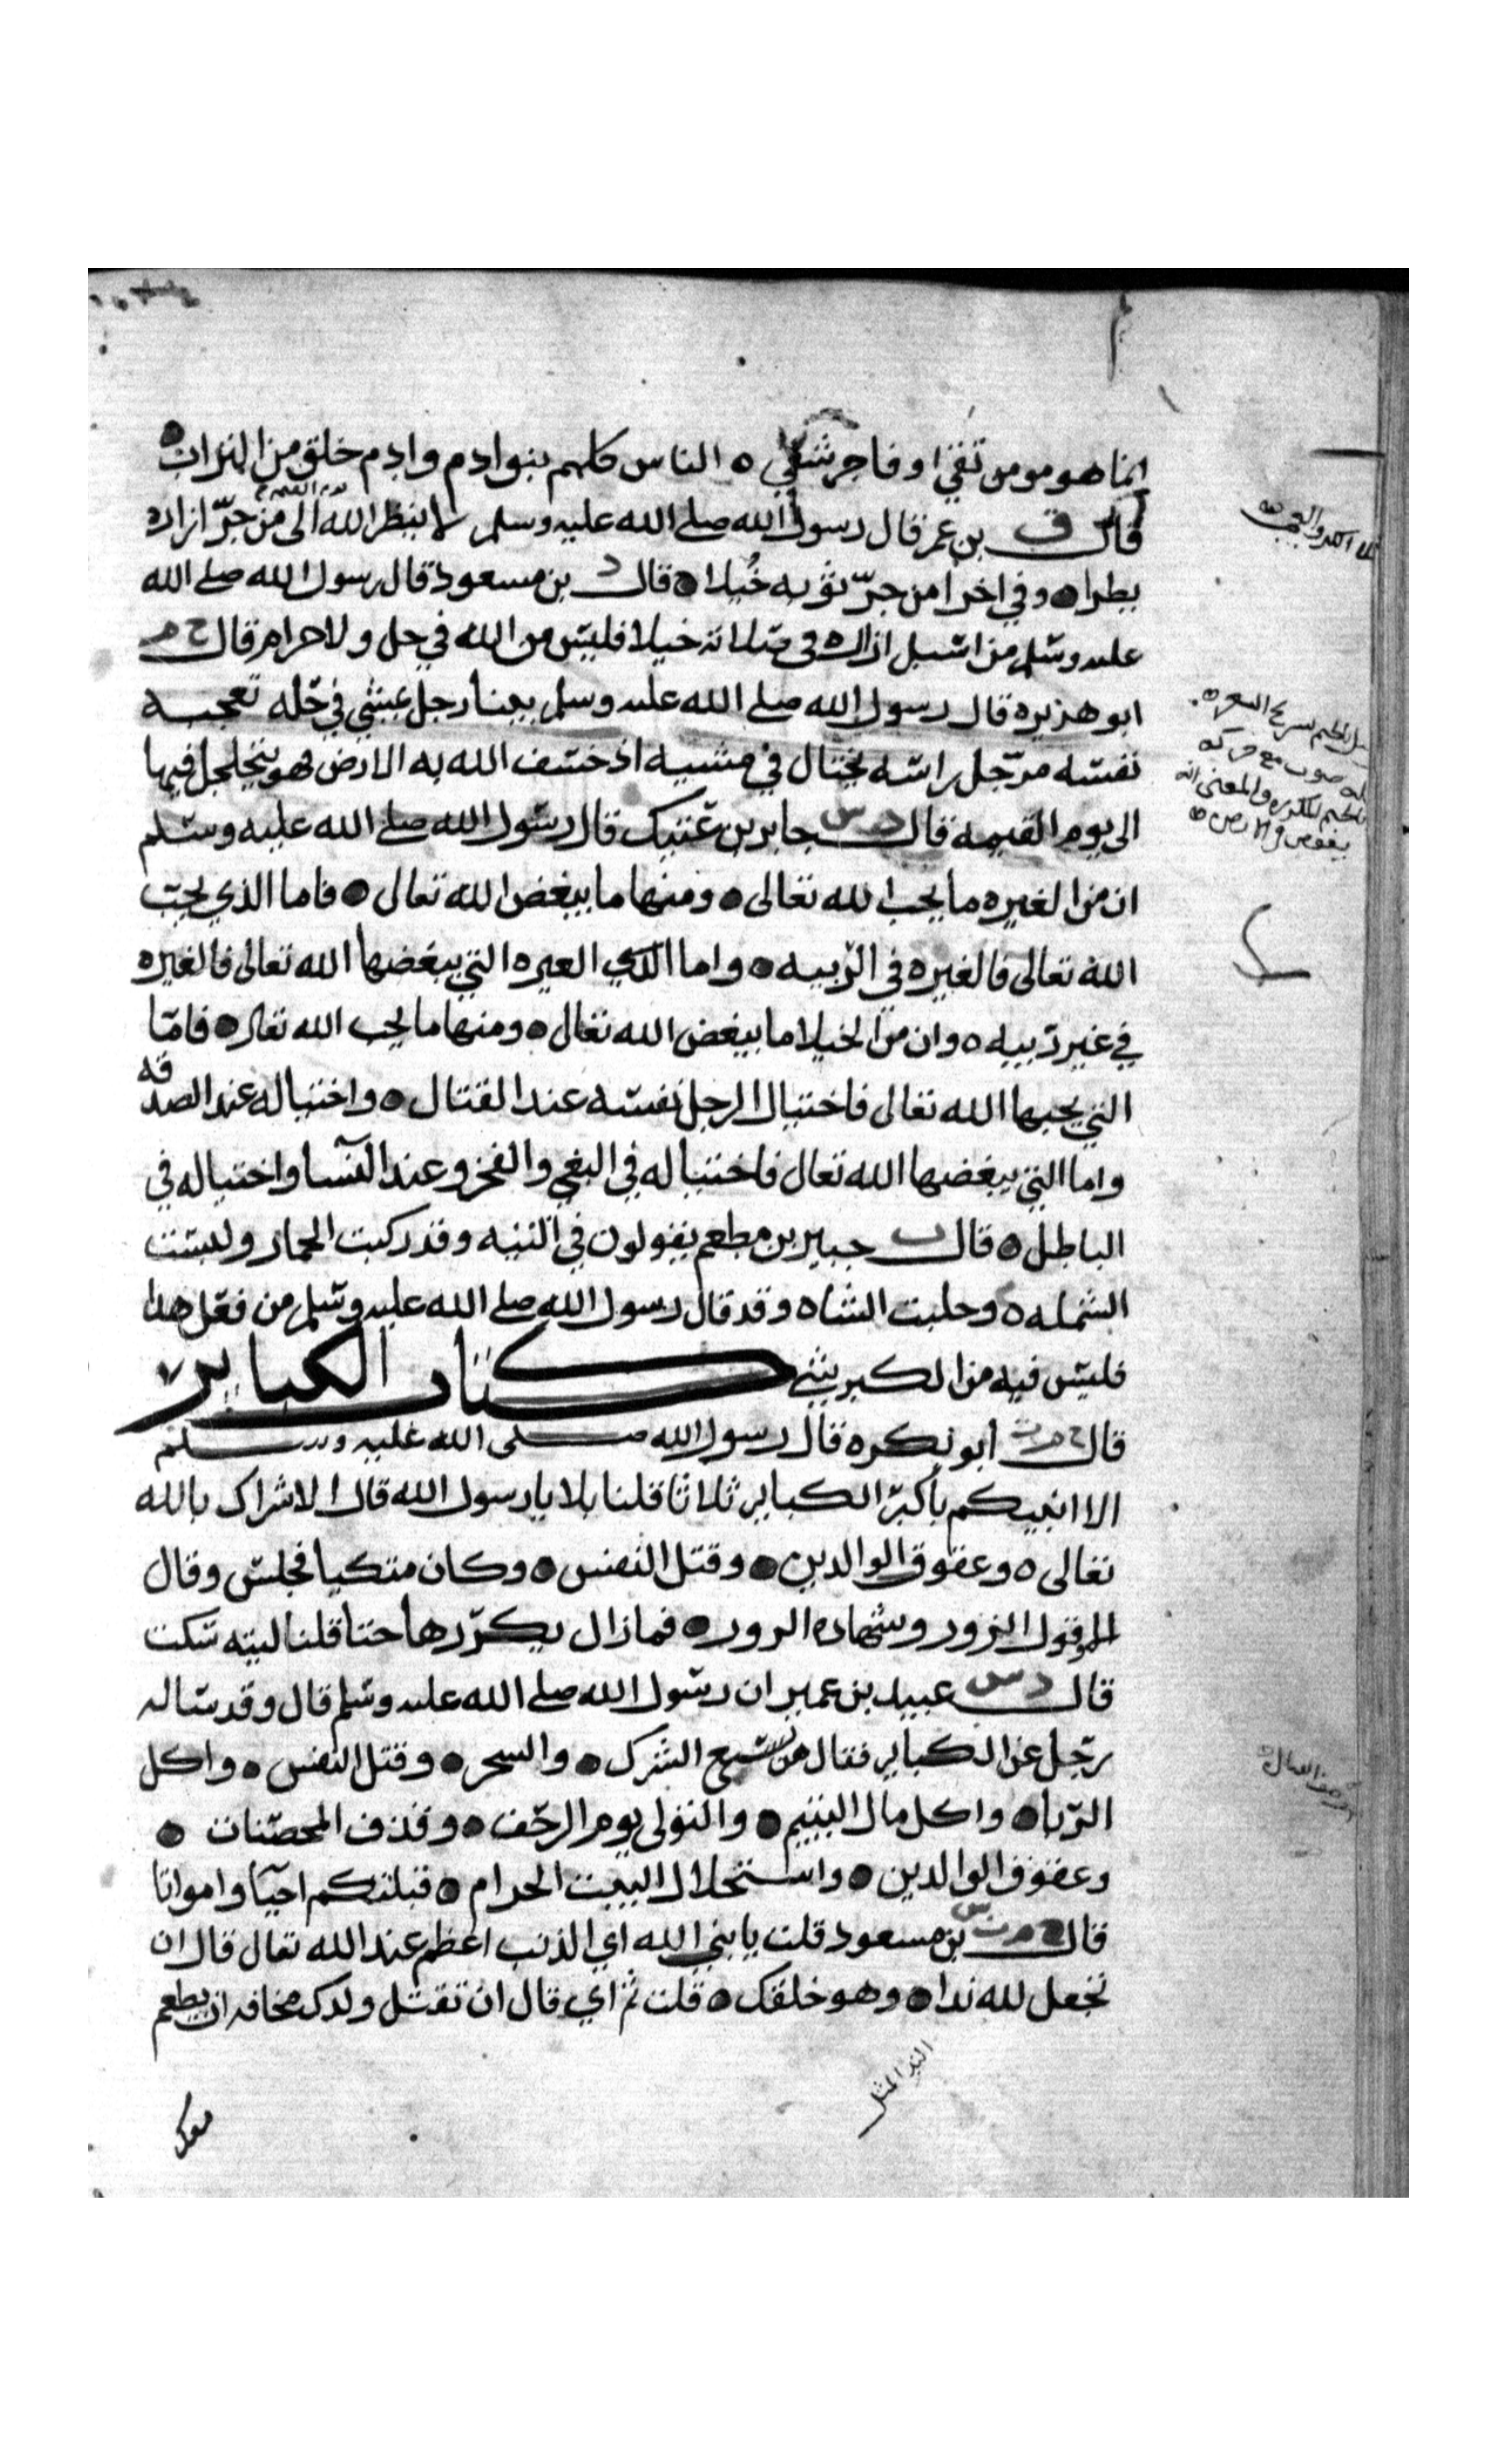 انما هو مومن تقي او فاجر شقي ه الناس كلهم بنوا ادم وادم خلق من التراب
قال ق بن عمر قال رسول الله صلى الله عليه وسلم لا ينظر الله يوم القيمة الى من جرّ ازاره
بطرا ه وفي اخرا من جرّ ثوبه خُيلا ه قال د بن مسعود قال رسول الله صلى الله
عليه وسلم من اسبل ازاره في صلاته خيلا فليس من الله في حل ولا حرام قال خ م
ابو هريره قال رسول الله صلى الله عليه وسلم بينا رجل يمشي في حله تعجبه
نفسه مرجّل راسه يختال في مشيه اذ خسف الله به الارض فهو يتجلجل فيها
الى يوم القيمه قال د س جابر بن عتيك قال رسول الله صلى الله عليه وسلم
ان من الغيره ما يحب الله تعالى ه ومنها ما يبغض الله تعالى ه فاما الذي يحبّ
الله تعالى فالغيره في الرّيبه ه واما الذي الغيره التي يبغضها الله تعالى فالغيره
في غير ريبه ه وان من الخيلا ما يبغض الله تعالى ه ومنها ما يحب الله تعالى ه فامّا
التي يحبها الله تعالى فاختيال الرجل نفسه عند القتال ه واختياله عند الصدقه
واما التي يبغضها الله تعالى فاختياله في البغي والفخر وعند النسا واختياله في
الباطل ه قال ت جبير بن مطعم يقولون في التيه وقد ركبت الحمار ولبست
الشمله ه وحلبت الشاه وقد قال رسول الله صلى الله عليه وسلم من فعل هذا
فليس فيه من الكبر شي كتاب الكباير
قال خ م ت ابو بكره قال رسول الله صلى الله عليه وسلم
الا انبيكم باكبر الكباير ثلاثا قلنا بلا يا رسول الله قال الاشراك بالله
تعالى ه وعقوق الوالدين ه وقتل النفس ه وكان متكيا فجلس وقال
وقول الزور وشهاده الزور ه فما زال يكرّرها حتا قلنا ليته سكت
قال د س عبيد بن عمير ان رسول الله صلى الله عليه وسلم قال وقد ساله
رجل عن الكباير فقال هن تسع الشرك ه والسحر ه وقتل النفس ه واكل
الرّبا ه واكل مال اليتيم ه والتولى يوم الزحف ه وقذف المحصنات ه
وعقوق الوالدين ه واستحلال البيت الحرام ه قبلتكم احيآ وامواتا
قال خ م ت س بن مسعود قلت يا نبي الله اي الذنب اعظم عند الله تعالى قال ان
تجعل لله ندا ه وهو خلقك ه قلت ثم اي قال ان تقتل ولدك مخافه ان يطعم
الند المثل
معك
والمعنى انه
يغوص في الارض ه